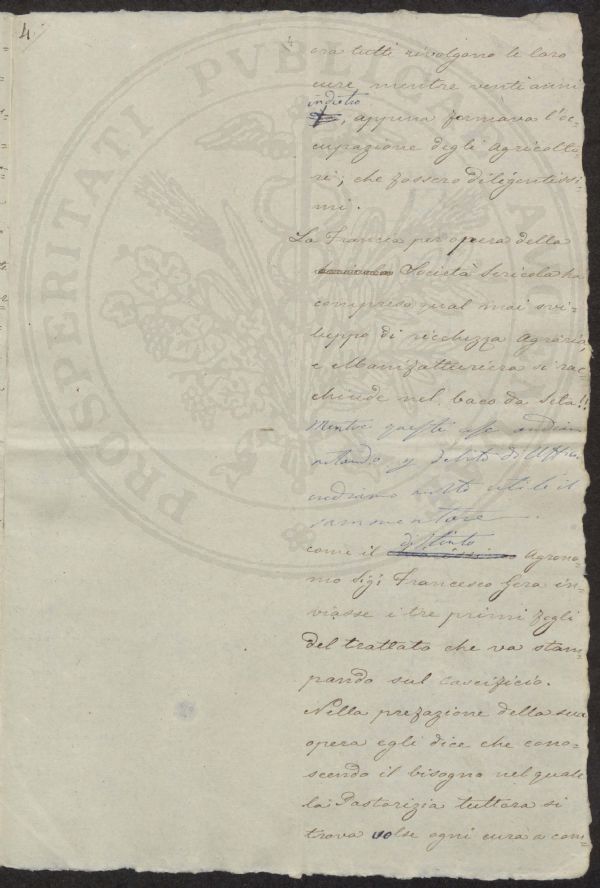 4
ora tutti rivolgono le loro
cure, mentre venti anni
indietro
, appena formava l'oc-
cupazione degli Agricolto-
ri, che fossero diligentissi-
mi.
La Francia per opera della
Società Sericola ha
compreso qual mai svi-
luppo di ricchezza Agraria,
e Manifatturiera si rac-
chiude nel baco da Seta!!
Mentre queste cose andiam
notando, debito di Uffizio
molto utile il
rammentare
distinto
come il Agrono-
mo Sig: Francesco Gera in-
viasse i tre primi fogli
del trattato che va stam-
pando sul caseificio.
Nella prefazione della sua
opera egli dice che cono-
scendo il bisogno nel quale
la Pastorizia tuttora si
trova volse ogni cura a com-
PROSPERITATI PUBLICAE